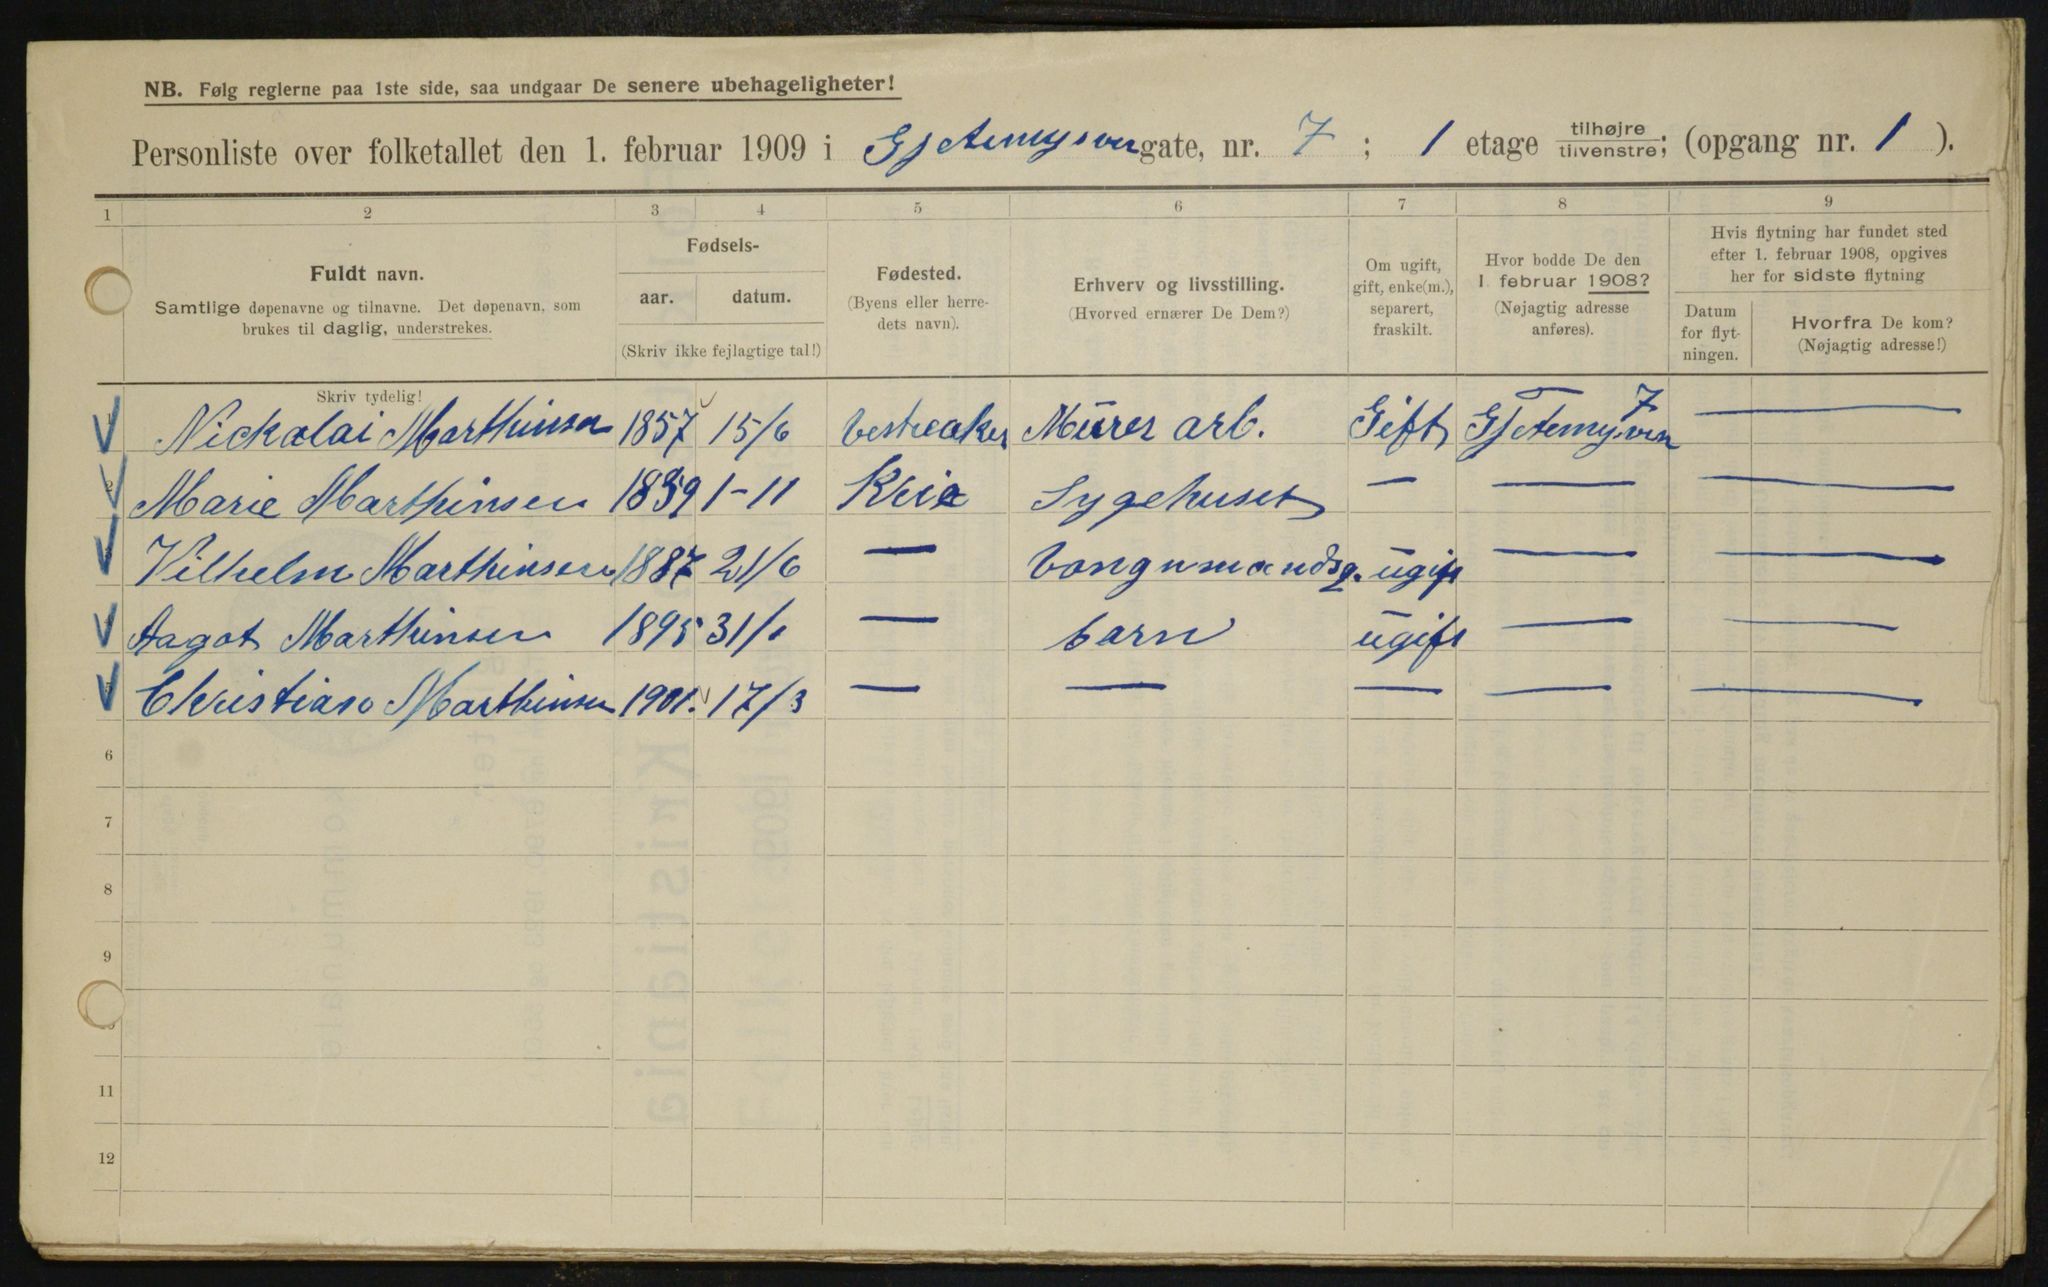 NB. Følg reglerne paa 1ste side, saa undgaar De senere ubehageligheter!
Personliste over folketallet den 1. februar 1909 i Gjetemyrsvergate, nr. 7; 1 etage tilhøjre tilvenstre; (opgang nr. 1).
1 2 3 4 5 6 7 8 9
Fuldt navn.
Samtlige døpenavne og tilnavne. Det døpenavn, som
brukes til daglig, understrekes.
Skriv tydelig!
Fødsels-
aar. datum.
(Skriv ikke fejlagtige tal!)
Fødested.
(Byens eller herre-
dets navn).
Erhverv og livsstilling.
(Hvorved ernærer De Dem?)
Om ugift,
gift, enke(m.),
separert,
fraskilt.
Hvor bodde De den
1 februar 1908?
(Nøjagtig adresse
anføres).
Hvis flytning har fundet sted
efter 1. februar 1908, opgives
her for sidste flytning
Datum
for flyt-
ningen.
Hvorfra De kom?
(Nøjagtig adresse!)
Nickolai Marthinsen 1857 15/6 Vestreaker Murer arb. Gift Gjetemyrsven 7 —
2 Marie Marthinsen 1859 1-11 Kria Sygehuset — — —
Vilhelm Marthinsen 1887 21/6 — Vongnmandsg. ugift — —
Aagot Marthinsen 1895 31/1 — barn ugift — —
Christian Marthinsen 1901. 17/3 — — — — —
6
7
8
9
11
12